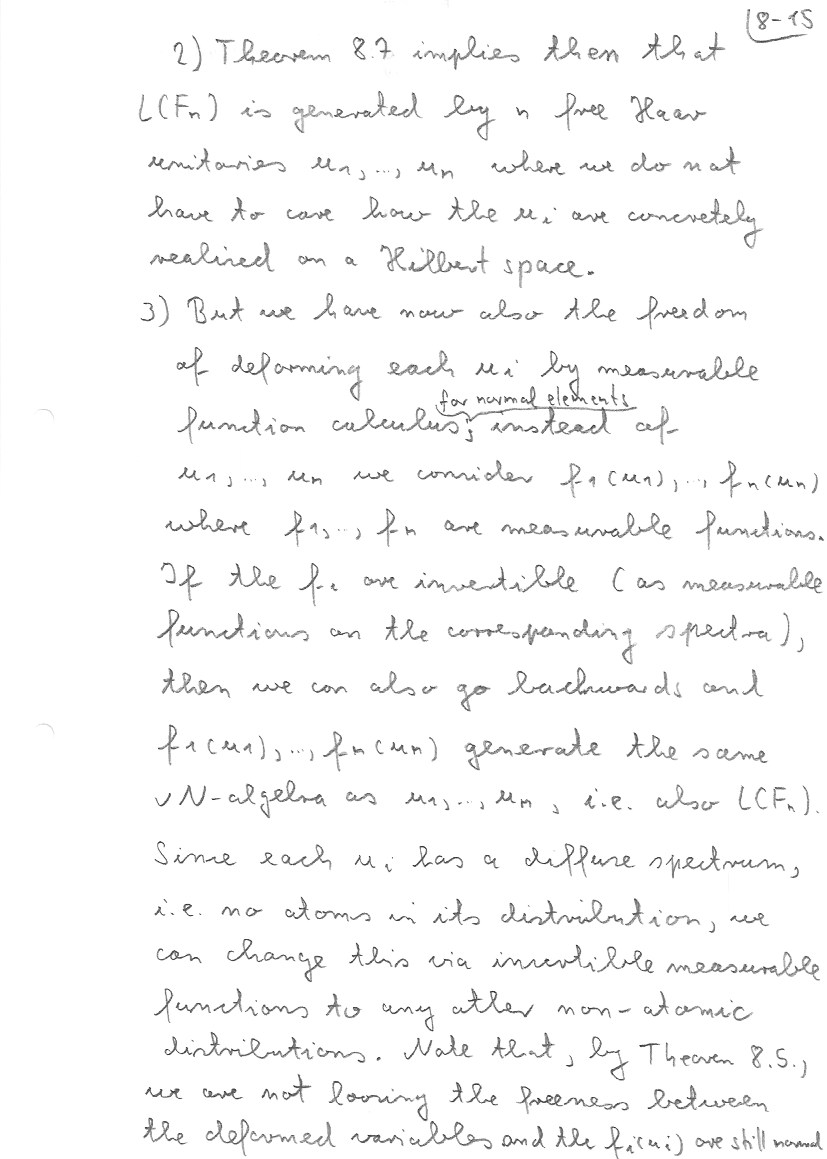 8-15
2) Theorem 8.7 implies then that
L(Fₙ) is generated by n free Haar
unitaries u₁,..., uₙ where we do not
have to care how the uᵢ are concretely
realized on a Hilbert space.
3) But we have now also the freedom
of deforming each uᵢ by measurable
for normal elements
function calculus; instead of
u₁,..., uₙ we consider f₁(u₁),.., fₙ(uₙ)
where f₁,.., fₙ are measurable functions.
If the fᵢ are invertible (as measurable
functions on the corresponding spectra),
then we can also go backwards and
f₁(u₁),..., fₙ(uₙ) generate the same
vN-algebra as u₁,..., uₙ, i.e. also L(Fₙ).
Since each uᵢ has a diffuse spectrum,
i.e. no atoms in its distribution, we
can change this via invertible measurable
functions to any other non-atomic
distributions. Note that, by Theorem 8.5.,
we are not loosing the freeness between
the deformed variables and the fᵢ(uᵢ) are still normal